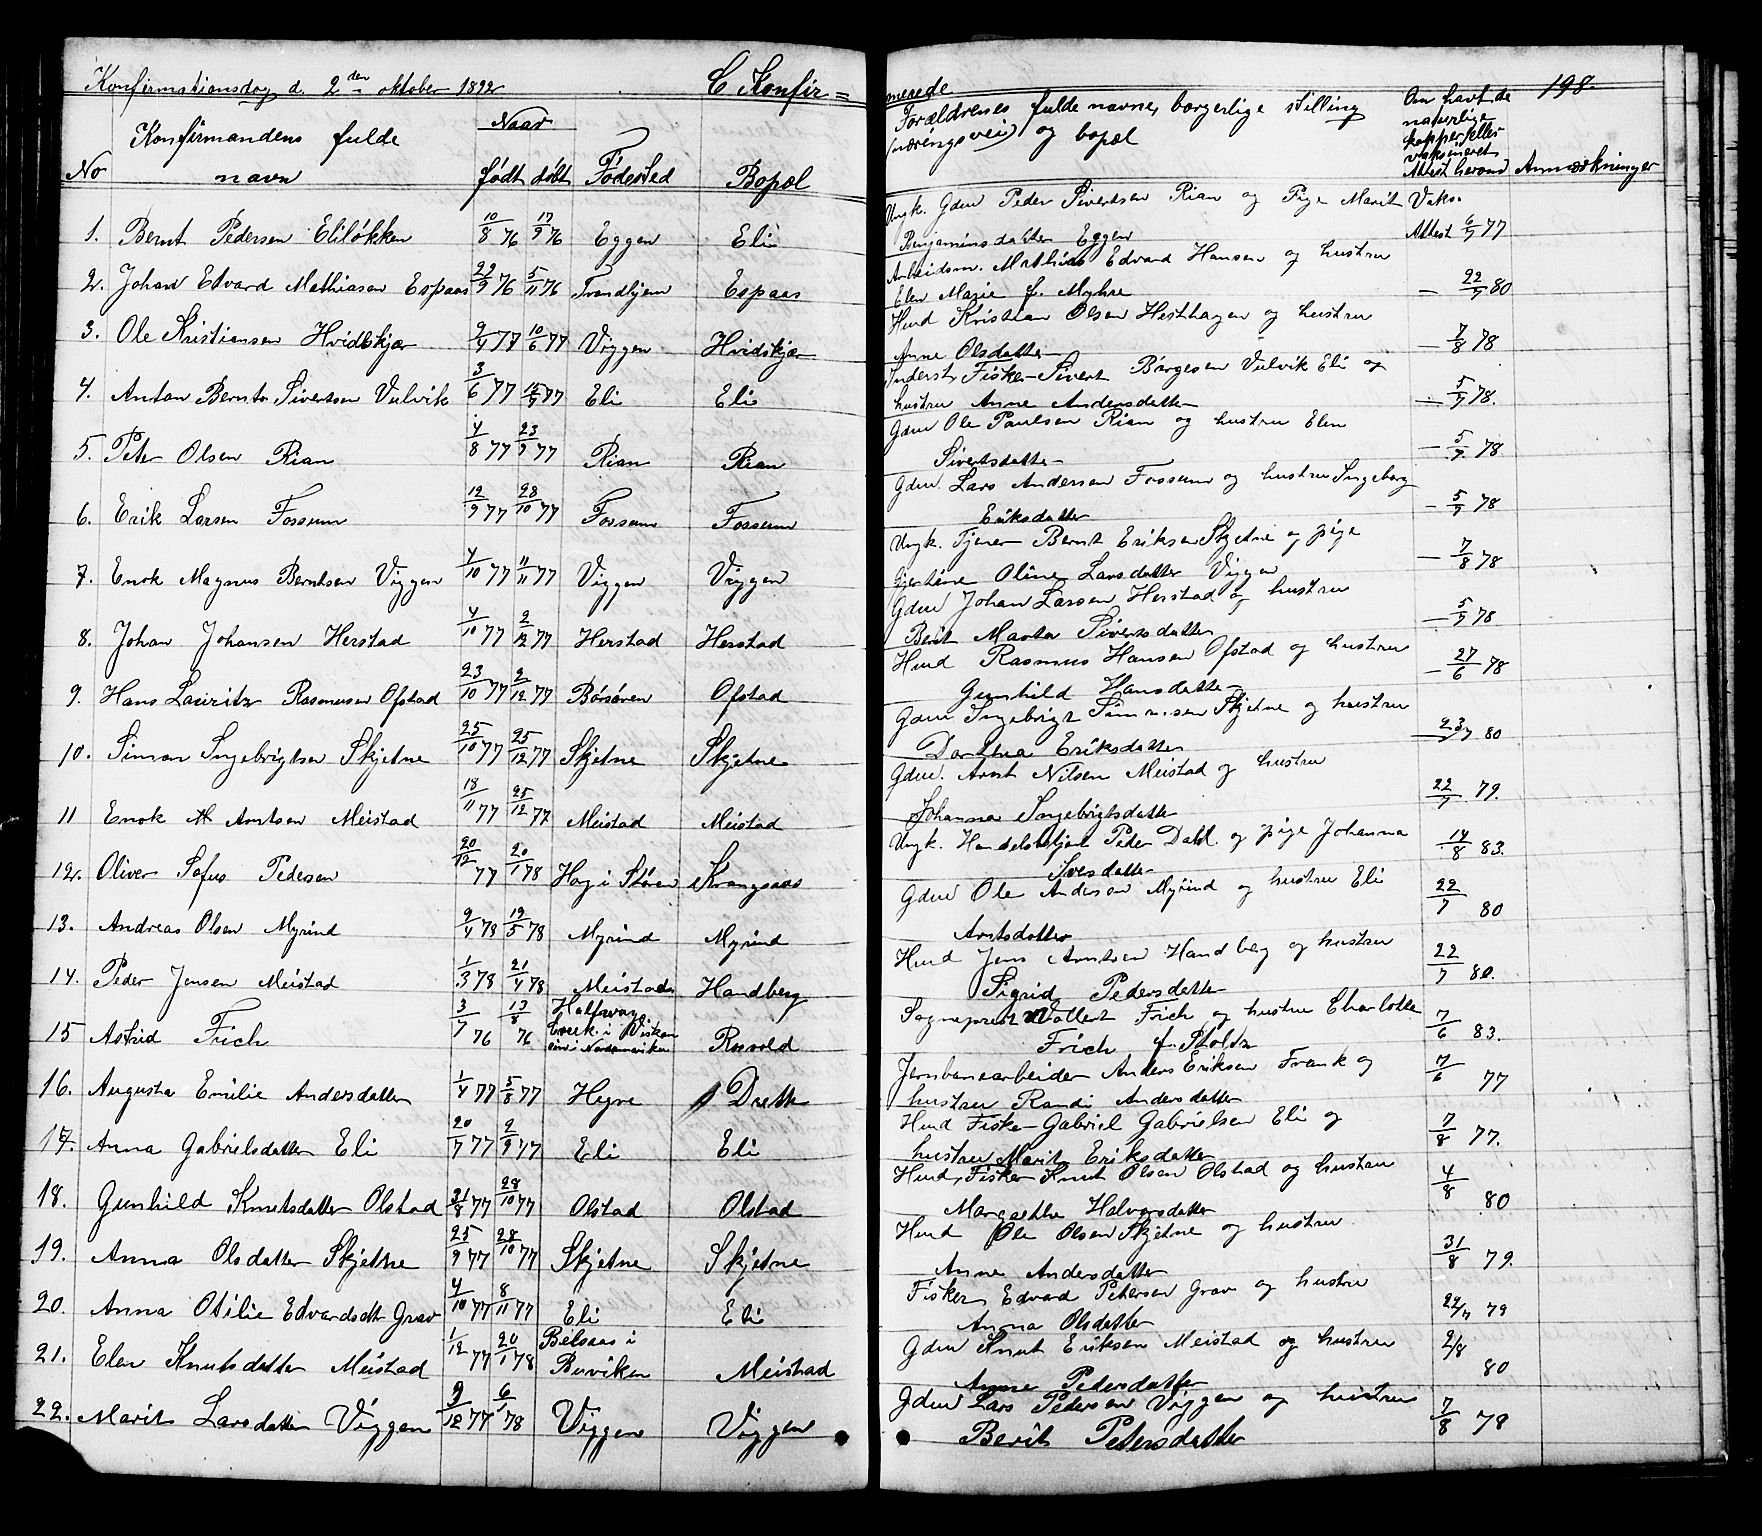 Konfirmationsdag d. 2den oktober 1892 C. Konfir=
No Konfirmandens fulde navn Naar født døbt Fødested Bopæl
1. Bernt Pedersen Eliløkken 10/8 76 17/9 76 Eggen Eli
2. Johan Edvard Mathiasen Espaas 22/9 76 5/11 76 Trondhjem Espaas
3. Ole Kristiansen Hvidskjær 9/4 77 10/6 77 Viggen Hvidskjær
4. Anton Bernts Sivertsen Vulvik 3/6 77 15/7 77 Eli Eli
5. Peter Olsen Rian 4/8 77 23/9 77 Rian Rian
6. Erik Larsen Fossum 12/9 77 28/10 77 Fossum Fossum
7. Enok Magnus Berntsen Viggen 4/10 77 11/11 77 Viggen Viggen
8. Johan Johansen Herstad 4/10 77 2/12 77 Herstad Herstad
9. Hans Lauritz Rasmusen Ofstad 23/10 77 2/12 77 Børsøren Ofstad
10. Simon Ingebrigtsen Skjetne 25/10 77 25/12 77 Skjetne Skjetne
11 Enok M Arntsen Meistad 18/11 77 25/12 77 Meistad Meistad
12. Oliver Sofus Pedersen 20/12 77 20/1 78 Hog i Støren Krangsaas
13. Andreas Olsen Myrind 9/4 78 19/5 78 Myrind Myrind
14. Peder Jensen Meistad 1/3 78 21/4 78 Meistad Handberg
15 Astrid Frich 3/7 76 13/8 76 Halfway Creek i Viskonsin i Nordamerika Rosvold
16. Augusta Emilie Andersdatter 1/4 77 5/8 77 Hegre Drett
17. Anna Gabrielsdatter Eli 20/7 77 2/9 77 Eli Eli
18. Gunhild Knutsdatter Olstad 31/8 77 28/10 77 Olstad Olstad
19. Anna Olsdatter Skjetne 25/9 77 28/10 77 Skjetne Skjetne
20. Anna Otilie Edvardsdt Grav 4/10 77 8/11 77 Eli Eli
21. Elen Knutsdatter Meistad 1/12 77 20/1 78 Belsaas i Buviken Meistad
22. Marit Larsdatter Viggen 9/12 77 6/1 78 Viggen Viggen
merede. 198.
Forældrenes fulde navne, borgerlige stilling
(næringsvei) og bopæl
Om havt de naturlige kopper eller vaksineret Attest herom Anmærkninger
Ungk. Gdm Peder Sivertsen Rian og Pige Marit Vaks.
Benjaminsdatter Eggen Attest 6/7 77
Arbeidsm. Mathias Edvard Hansen og hustru
Elen Marie f. Myhre – 22/7 80
Husd Kristian Olsen Hesthagen og hustru
Anne Olsdatter – 7/8 78
Inderst, Fisker Sivert Børgesen Vulvik Eli og
hustru Anne Andersdatter – 5/7 78.
Gdm Ole Paulsen Rian og hustru Elen
Sivertsdatter – 5/7 78
Gdm. Lars Andersen Fossum og hustru Ingeborg
Eriksdatter – 5/7 78
Ungk. Tjener Bernt Eriksen Skjetne og pige
Gjertine Oline Larsdatter Viggen – 7/8 78
Gdm Johan Larsen Herstad og hustru
Berit Marta Sivertsdatter – 5/7 78
Husd Rasmus Hansen Ofstad og hustru
Gunhild Hansdatter – 27/6 78
Gdm Ingebrigt Simonsen Skjetne og hustru
Dorthea Eriksdatter 23/7 80
Gdm. Arnt Nilsen Meistad og hustru
Johanna Ingebrigtsdatter 22/7 79.
Ungk. Handelsbetjent Peder Dahl og pige Johanna
Iversdatter 14/8 83.
Gdm Ole Andersen Myrind og hustru Eli
Arntsdatter 22/7 80
Husd Jens Arntsen Handberg og hustru
Sigrid Pedersdatter 22/7 80.
Sogneprest Wollert Frich og hustru Charlotte
Frich f. Stoltz 7/6 83.
Jernbanearbeider Anders Eriksen Frank og
hustru Randi Andersdatter 7/6 77
Husd Fisker Gabriel Gabrielsen Eli og
hustru Marit Eriksdatter 7/8 77.
Husd, Fisker Knut Olsen Olstad og hustru
Margrethe Halvorsdatter 4/8 80
Husd Ole Olsen Skjetne og hustru
Anne Andersdatter 31/8 79.
Fisker Edvard Petersen Grav og hustru
Anna Olsdatter 22/7 79
Gdm Knut Eriksen Meistad og hustru
Anne Pedersdatter 2/8 80
Gdm Lars Pedersen Viggen og hustru
Berit Petersdatter 7/8 78